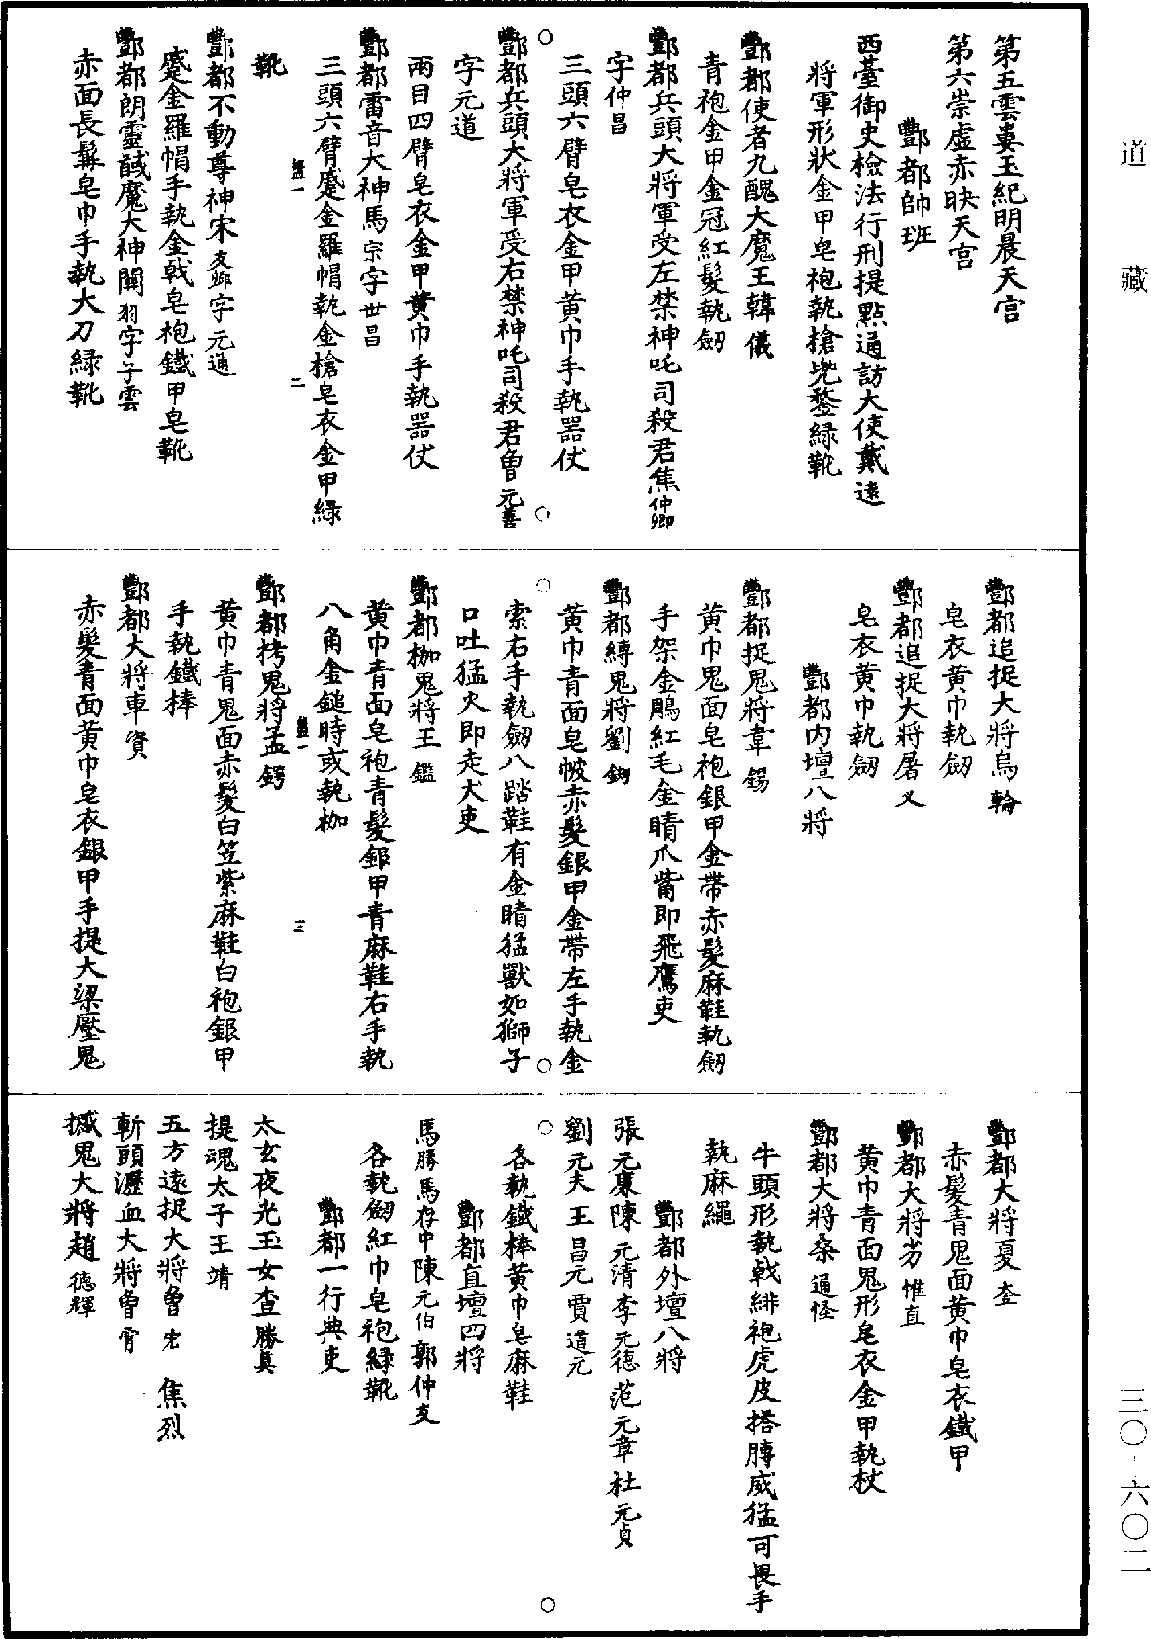 道藏
第五雲婁玉紀明晨天宮
第六崇虛赤映天宮
酆都帥班
西臺御史檢法行刑提點通訪大使戴遠
將軍形狀金甲皂袍執搶兠鍪綠靴
酆都使者九醜大魔王韓儀
青袍金甲金冠紅髮執劒
酆都兵頭大將軍受左禁神吒司殺君焦仲卿
字仲昌
三頭六臂皂衣金甲黃巾手執器仗
酆都兵頭大將軍受右禁神吒司殺君魯元善
字元道
兩目四臂皂衣金甲黃巾手執器仗
酆都雷音大神馬宗字世昌
三頭六臂蹙金羅帽執金槍皂衣金甲綠
靴
酆都不動尊神宋友卿字元通
蹙金羅帽手執金戟皂袍鐵甲皂靴
酆都朗靈馘魔大神關羽字子雲
赤面長髯皂巾手執大刀綠靴
酆都追捉大將烏輪
皂衣黃巾執劒
酆都追捉大將屠乂
皂衣黃巾執劒
酆都內壇八將
酆都捉鬼將韋錫
黃巾鬼面皂袍銀甲金帶赤髮麻鞋執劒
手架金鵰紅毛金睛爪觜即飛鷹吏
酆都縛鬼將劉鉤
黃巾青面皂帔赤髮銀甲金帶左手執金
索右手執劒八踏鞋有金睛猛獸如獅子
口吐猛火即走犬吏
酆都枷鬼將王鑑
黃巾青面皂袍青髮銀甲青麻鞋右手執
八角金鎚時或執枷
酆都拷鬼將孟鍔
黃巾青鬼面赤髮白笠紫麻鞋白袍銀甲
手執鐵棒
酆都大將車資
赤髮青面黃巾皂衣銀甲手提大梁壓鬼
酆都大將夏
赤髮青鬼面黃巾皂衣鐵甲
酆都大將惟直
黃巾青面鬼形皂衣金甲執杖
酆都大將桑通怪
牛頭形執戟緋袍虎皮搭膊威猛可畏手
執麻繩
酆都外壇八將
張元廉陳元清李元德范元章杜元貞
劉元夫王昌元賈道元
各執鐵棒黃巾皂麻鞋
酆都直壇四將
馬勝馬存中陳元伯郭仲支
各執劒紅巾皂袍綠靴
酆都一行典吏
太玄夜光玉女查勝真
提魂太子王靖
五方遠捉大將魯宏焦烈
斬頭瀝血大將魯霄
撼鬼大將趙德輝
三〇·六〇二